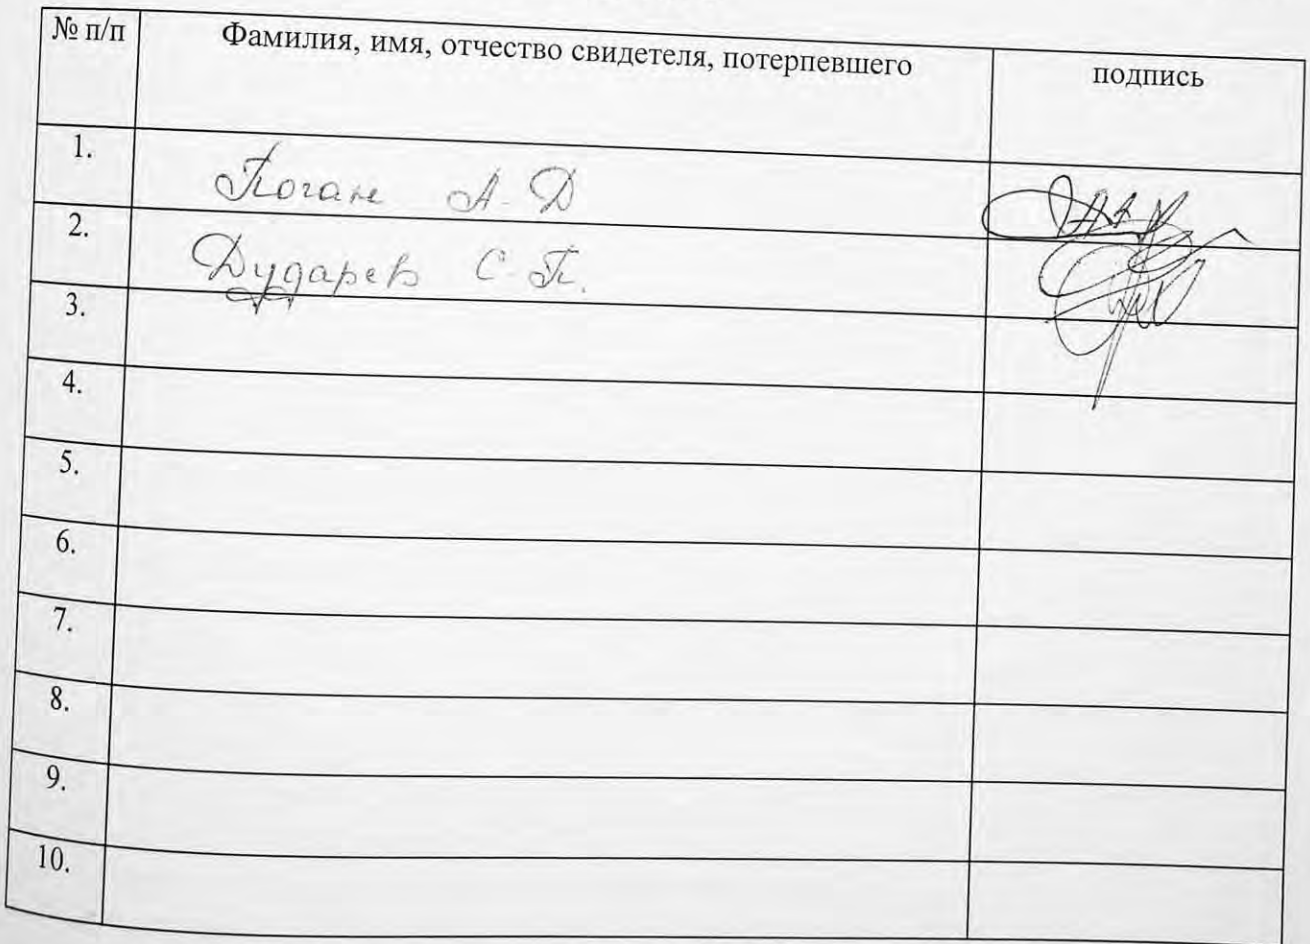 № п/п Фамилия, имя, отчество свидетеля, потерпевшего подпись
1. Поган А. Д
2. Дударев С. П.
3.
4.
5.
6.
7.
8.
9.
10.